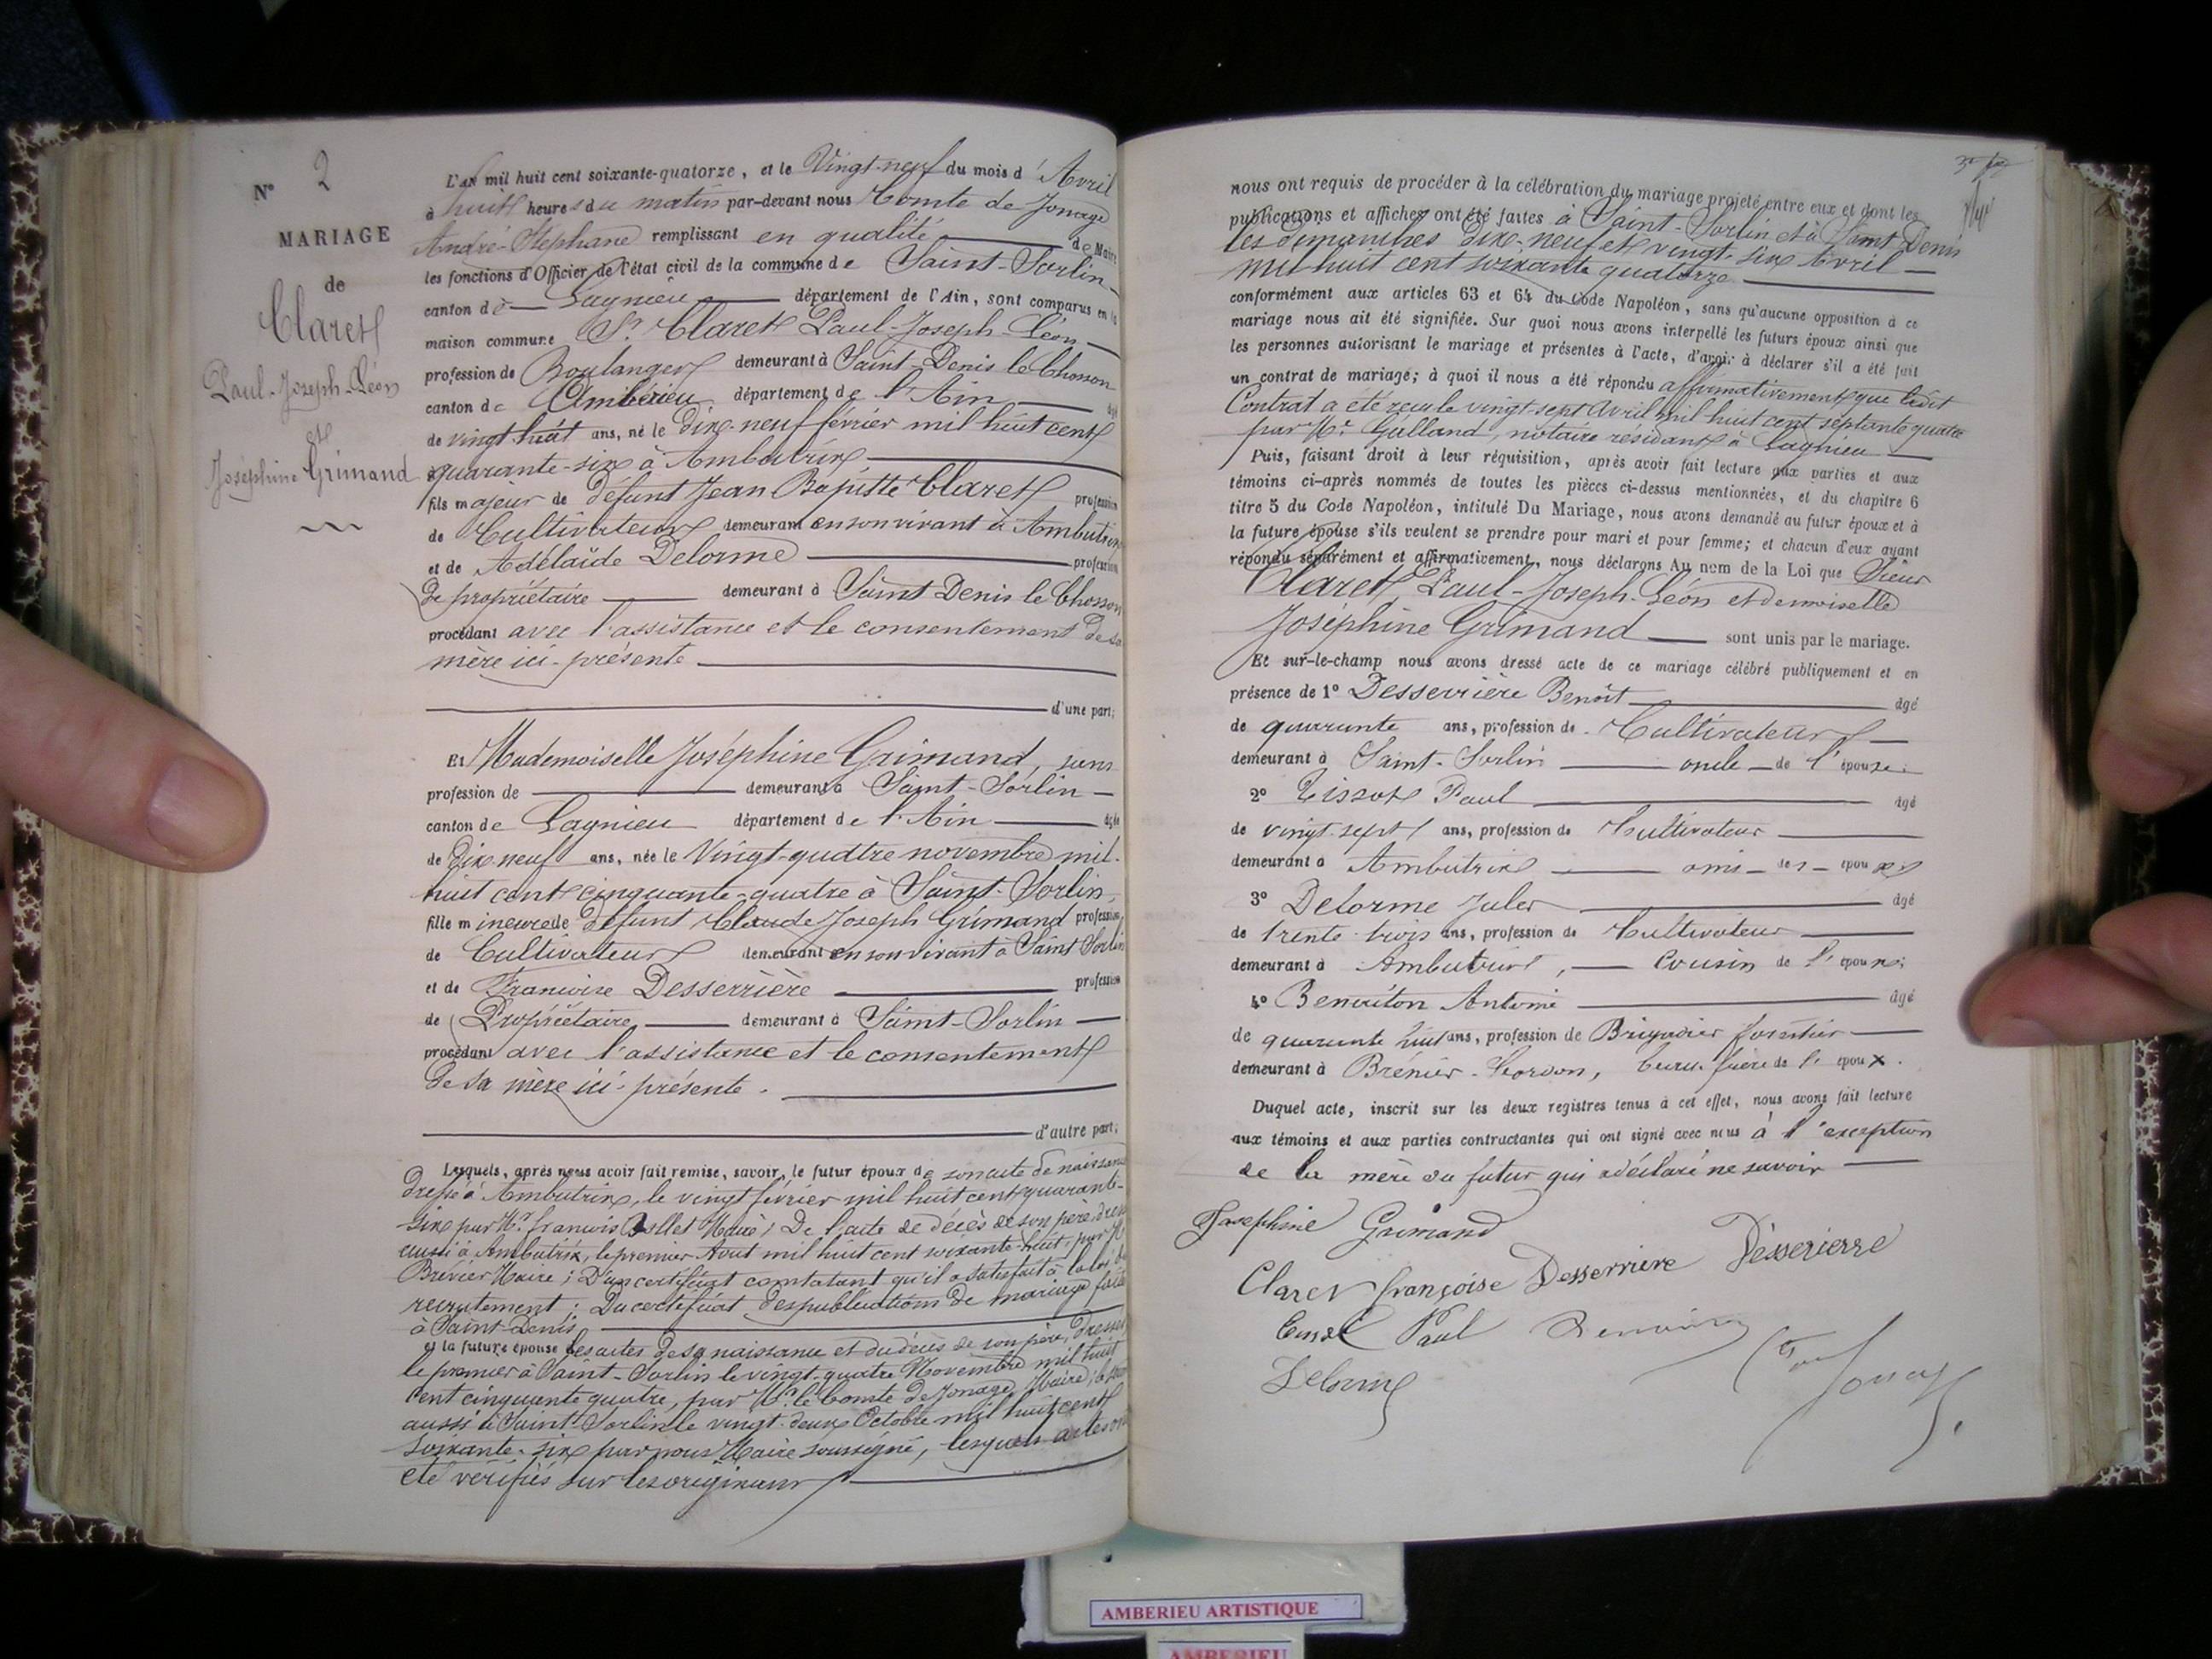 N° 2
MARIAGE
de
Claret
Paul-Joseph-Léon
et
Joséphine Grimand
L'an mil huit cent soixante-quatorze, et le Vingt-neuf du mois d'Avril
à huit heures du matin par-devant nous Comte de Jonage
André-Stéphane remplissant en qualité de Maire
les fonctions d'Officier de l'état civil de la commune de Saint-Sorlin
canton de Lagnieu département de l'Ain, sont comparus en la
maison commune Sr. Claret Paul-Joseph-Léon
profession de Boulanger demeurant à Saint-Denis le Chosson
canton de Ambérieu département de l'Ain âgé
de vingt huit ans, né le dix-neuf février mil huit cent
quarante-six à Ambutrix
fils majeur de défunt Jean Baptiste Claret profession
de Cultivateur demeurant en son vivant à Ambutrix
et de Adélaïde Delorme profession
de propriétaire demeurant à Saint Denis le Chosson
procédant avec l'assistance et le consentement de sa
mère ici-présente
d'une part;
Et Mademoiselle Joséphine Grimand, sans
profession de demeurant à Saint-Sorlin
canton de Lagnieu département de l'Ain âgée
de Dix-neuf ans, née le Vingt-quatre novembre mil
huit cent cinquante-quatre à Saint-Sorlin,
fille mineure de défunt Claude Joseph Grimand profession
de Cultivateur demeurant en son vivant à Saint Sorlin
et de Francoise Desserrière profession
de Propriétaire demeurant à Saint-Sorlin
procédant avec l'assistance et le consentement
de sa mère ici-présente.
d'autre part;
Lesquels, après nous avoir fait remise, savoir, le futur époux de son acte de naissance
dressé à Ambutrix, le vingt février mil huit cent quarante-
six par Mr. francois Maire; De l'acte de décès de son père, dressé
aussi à Ambutrix, le premier Aout mil huit cent soixante-huit, par Mr
Brévier Maire; D'un certificat constatant qu'il a satisfait à la loi de
recrutement; Du certificat des publications de mariage faites
à Saint-Denis
et la future épouse des actes de sa naissance et du décès de son père, dressés
le premier à Saint-Sorlin le vingt-quatre Novembre mil huit
cent cinquante quatre, par Mr. le Comte De Jonage Maire; le
aussi à Saint-Sorlin le vingt-deux Octobre mil huit cent
soixante-six par nous Maire soussigné, lesquels actes ont
été vérifiés sur les originaux
nous ont requis de procéder à la célébration du mariage projeté entre eux et dont les
publications et affiches ont été faites à Saint-Sorlin et à Saint Denis
les dimanches dix-neuf et vingt-six Avril
mil huit cent soixante quatorze
conformément aux articles 63 et 64 du Code Napoléon, sans qu'aucune opposition à ce
mariage nous ait été signifiée. Sur quoi nous avons interpellé les futurs époux ainsi que
les personnes autorisant le mariage et présentes à l'acte, d'avoir à déclarer s'il a été fait
un contrat de mariage; à quoi il nous a été répondu affirmativement que ledit
Contrat a été recu le vingt-sept Avril mil huit cent septante quatre
par Mr. Galland, notaire résidant à Lagnieu
Puis, faisant droit à leur réquisition, après avoir fait lecture aux parties et aux
témoins ci-après nommés de toutes les pièces ci-dessus mentionnées, et du chapitre 6
titre 5 du Code Napoléon, intitulé Du Mariage, nous avons demandé au futur époux et à
la future épouse s'ils veulent se prendre pour mari et pour femme; et chacun d'eux ayant
répondu séparément et affirmativement, nous déclarons Au nom de la Loi que Sieur
Claret, Paul-Joseph-Léon et demoiselle
Joséphine Grimand sont unis par le mariage.
Et sur-le-champ nous avons dressé acte de ce mariage célébré publiquement et en
présence de 1° Desserrière Benoît âgé
de quarante ans, profession de Cultivateur
demeurant à Saint-Sorlin oncle de l'épouse;
2° Tissot Paul âgé
de vingt-sept ans, profession de Cultivateur
demeurant à Ambutrix ami des époux;
3° Delorme Jules âgé
de trente trois ans, profession de Cultivateur
demeurant à Ambutrix, Cousin de l'époux;
4° Antoine âgé
de quarante huit ans, profession de Brigadier forestier
demeurant à Brénier-Cordon, beau-frère de l'époux.
Duquel acte, inscrit sur les deux registres tenus à cet effet, nous avons fait lecture
aux témoins et aux parties contractantes qui ont signé avec nous à l'exception
de la mère du futur qui a déclaré ne savoir
Josephine Grimand
Claret françoise Desserriere Desserierre
Paul
Delorme Jonage
AMBERIEU ARTISTIQUE
AMBERIEU